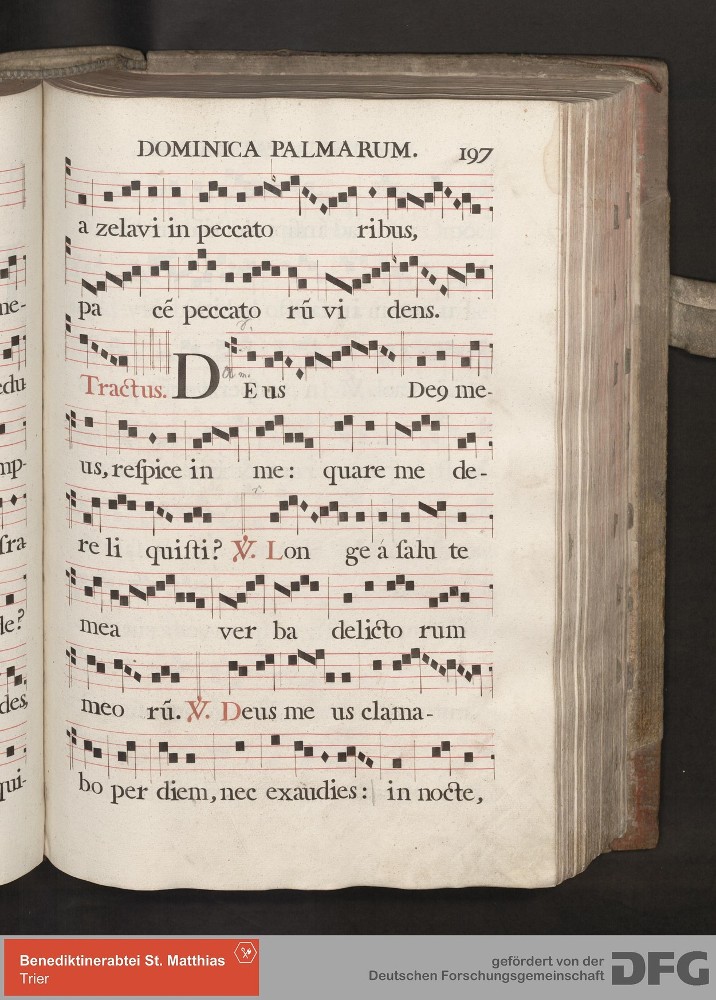 DOMINICA PALMARUM. 197
a zelavi in peccato ribus,
pa cẽ peccato rũ vi dens.
Tractus. DEus Deꝰ me-
us, reſpice in me: quare me de-
re li quiſti? ℣. Lon ge á ſalu te
mea ver ba delicto rum
meo rũ. ℣. Deus me us clama-
bo per diem, nec exaudies: in nocte,
ne-
edu
mp-
ſra
de?
des,
qui-
Benediktinerabtei St. Matthias
Trier
gefördert von der
Deutschen Forschungsgemeinschaft
DFG